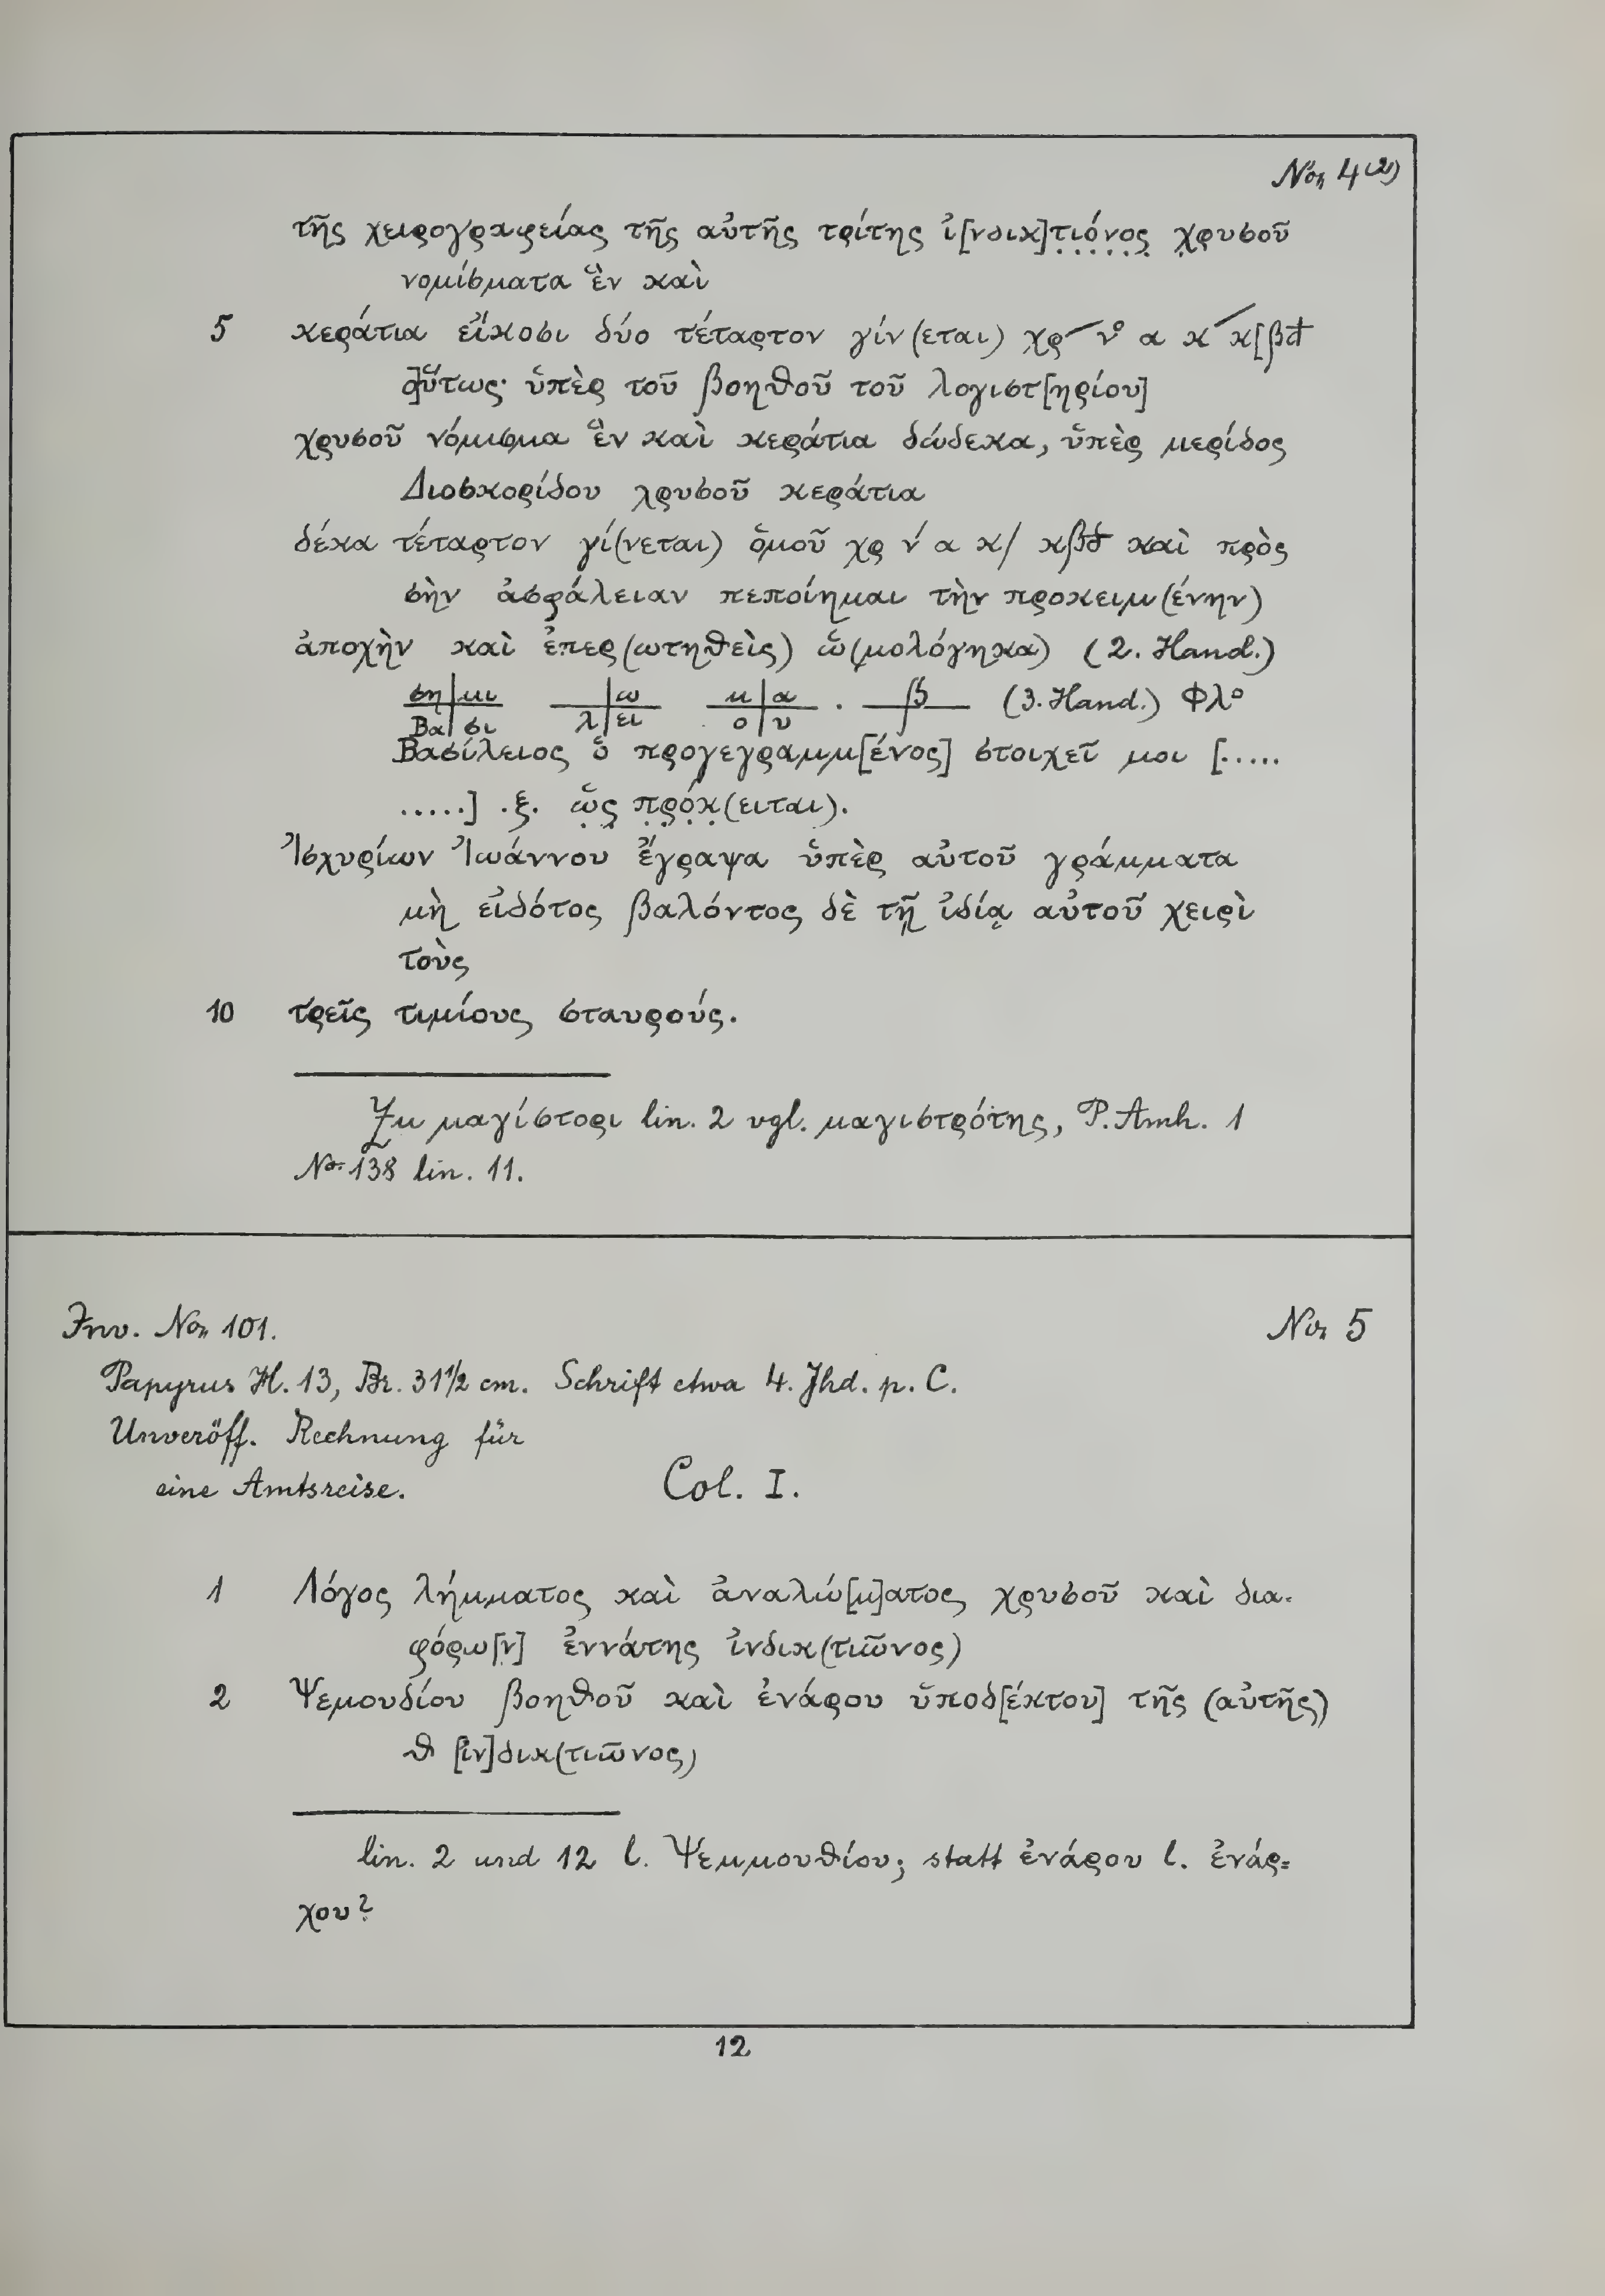 No. 4(2)
τῆς χειρογραφείας τῆς αὐτῆς τρίτης ἰ[νδικ]τ̣ι̣ό̣ν̣ο̣ς̣ χ̣ρυσοῦ
νομίσματα ἓν καὶ
5 κεράτια εἴκοσι δύο τέταρτον γίν(εται) χρ νο α κ κ[βδ
ο]ὕτως· ὑπὲρ τοῦ βοηθοῦ τοῦ λογιστ[ηρίου]
χρυσοῦ νόμισμα ἓν καὶ κεράτια δώδεκα, ὑπὲρ μερίδος
Διοσκορίδου χρυσοῦ κεράτια
δέκα τέταρτον γί(νεται) ὁμοῦ χρ ν α κ/ κβδ καὶ πρὸς
σὴν ἀσφάλειαν πεποίημαι τὴν προκειμ(ένην)
ἀποχὴν καὶ ἐπερ(ωτηθεὶς) ὡ(μολόγηκα) (2. Hand.)
ση|μι |ω μ|α . β (3. Hand.) Φλο
Βα|σι λ|ει ο|υ
Βασίλειος ὁ προγεγραμμ[ένος] στοιχεῖ μοι [.....
.....] .ξ. ὡ̣ς̣ π̣ρ̣ό̣κ̣(ειται).
Ἰσχυρίων Ἰωάννου ἔγραψα ὑπὲρ αὐτοῦ γράμματα
μὴ εἰδότος βαλόντος δὲ τῇ ἰδίᾳ αὐτοῦ χειρὶ
τοὺς
10 τρεῖς τιμίους σταυρούς.
Zu μαγίστορι lin. 2 vgl. μαγιστρότης, P. Amh. 1
No. 138 lin. 11.
Inv. No. 101. No. 5
Papyrus H. 13, Br. 31½ cm. Schrift etwa 4. Jhd. p. C.
Unveröff. Rechnung für
eine Amtsreise. Col. I.
1 Λόγος λήμματος καὶ ἀναλώ[μ]ατος χρυσοῦ καὶ δια-
φόρω[ν] ἐννάτης ἰνδικ(τιῶνος)
2 Ψεμουδίου βοηθοῦ καὶ ἐνάρου ὑποδ[έκτου] τῆς (αὐτῆς)
θ [ἰν]δικ(τιῶνος)
lin. 2 und 12 l. Ψεμμουθίου; statt ἐνάρου l. ἐνάρ=
χου?
12